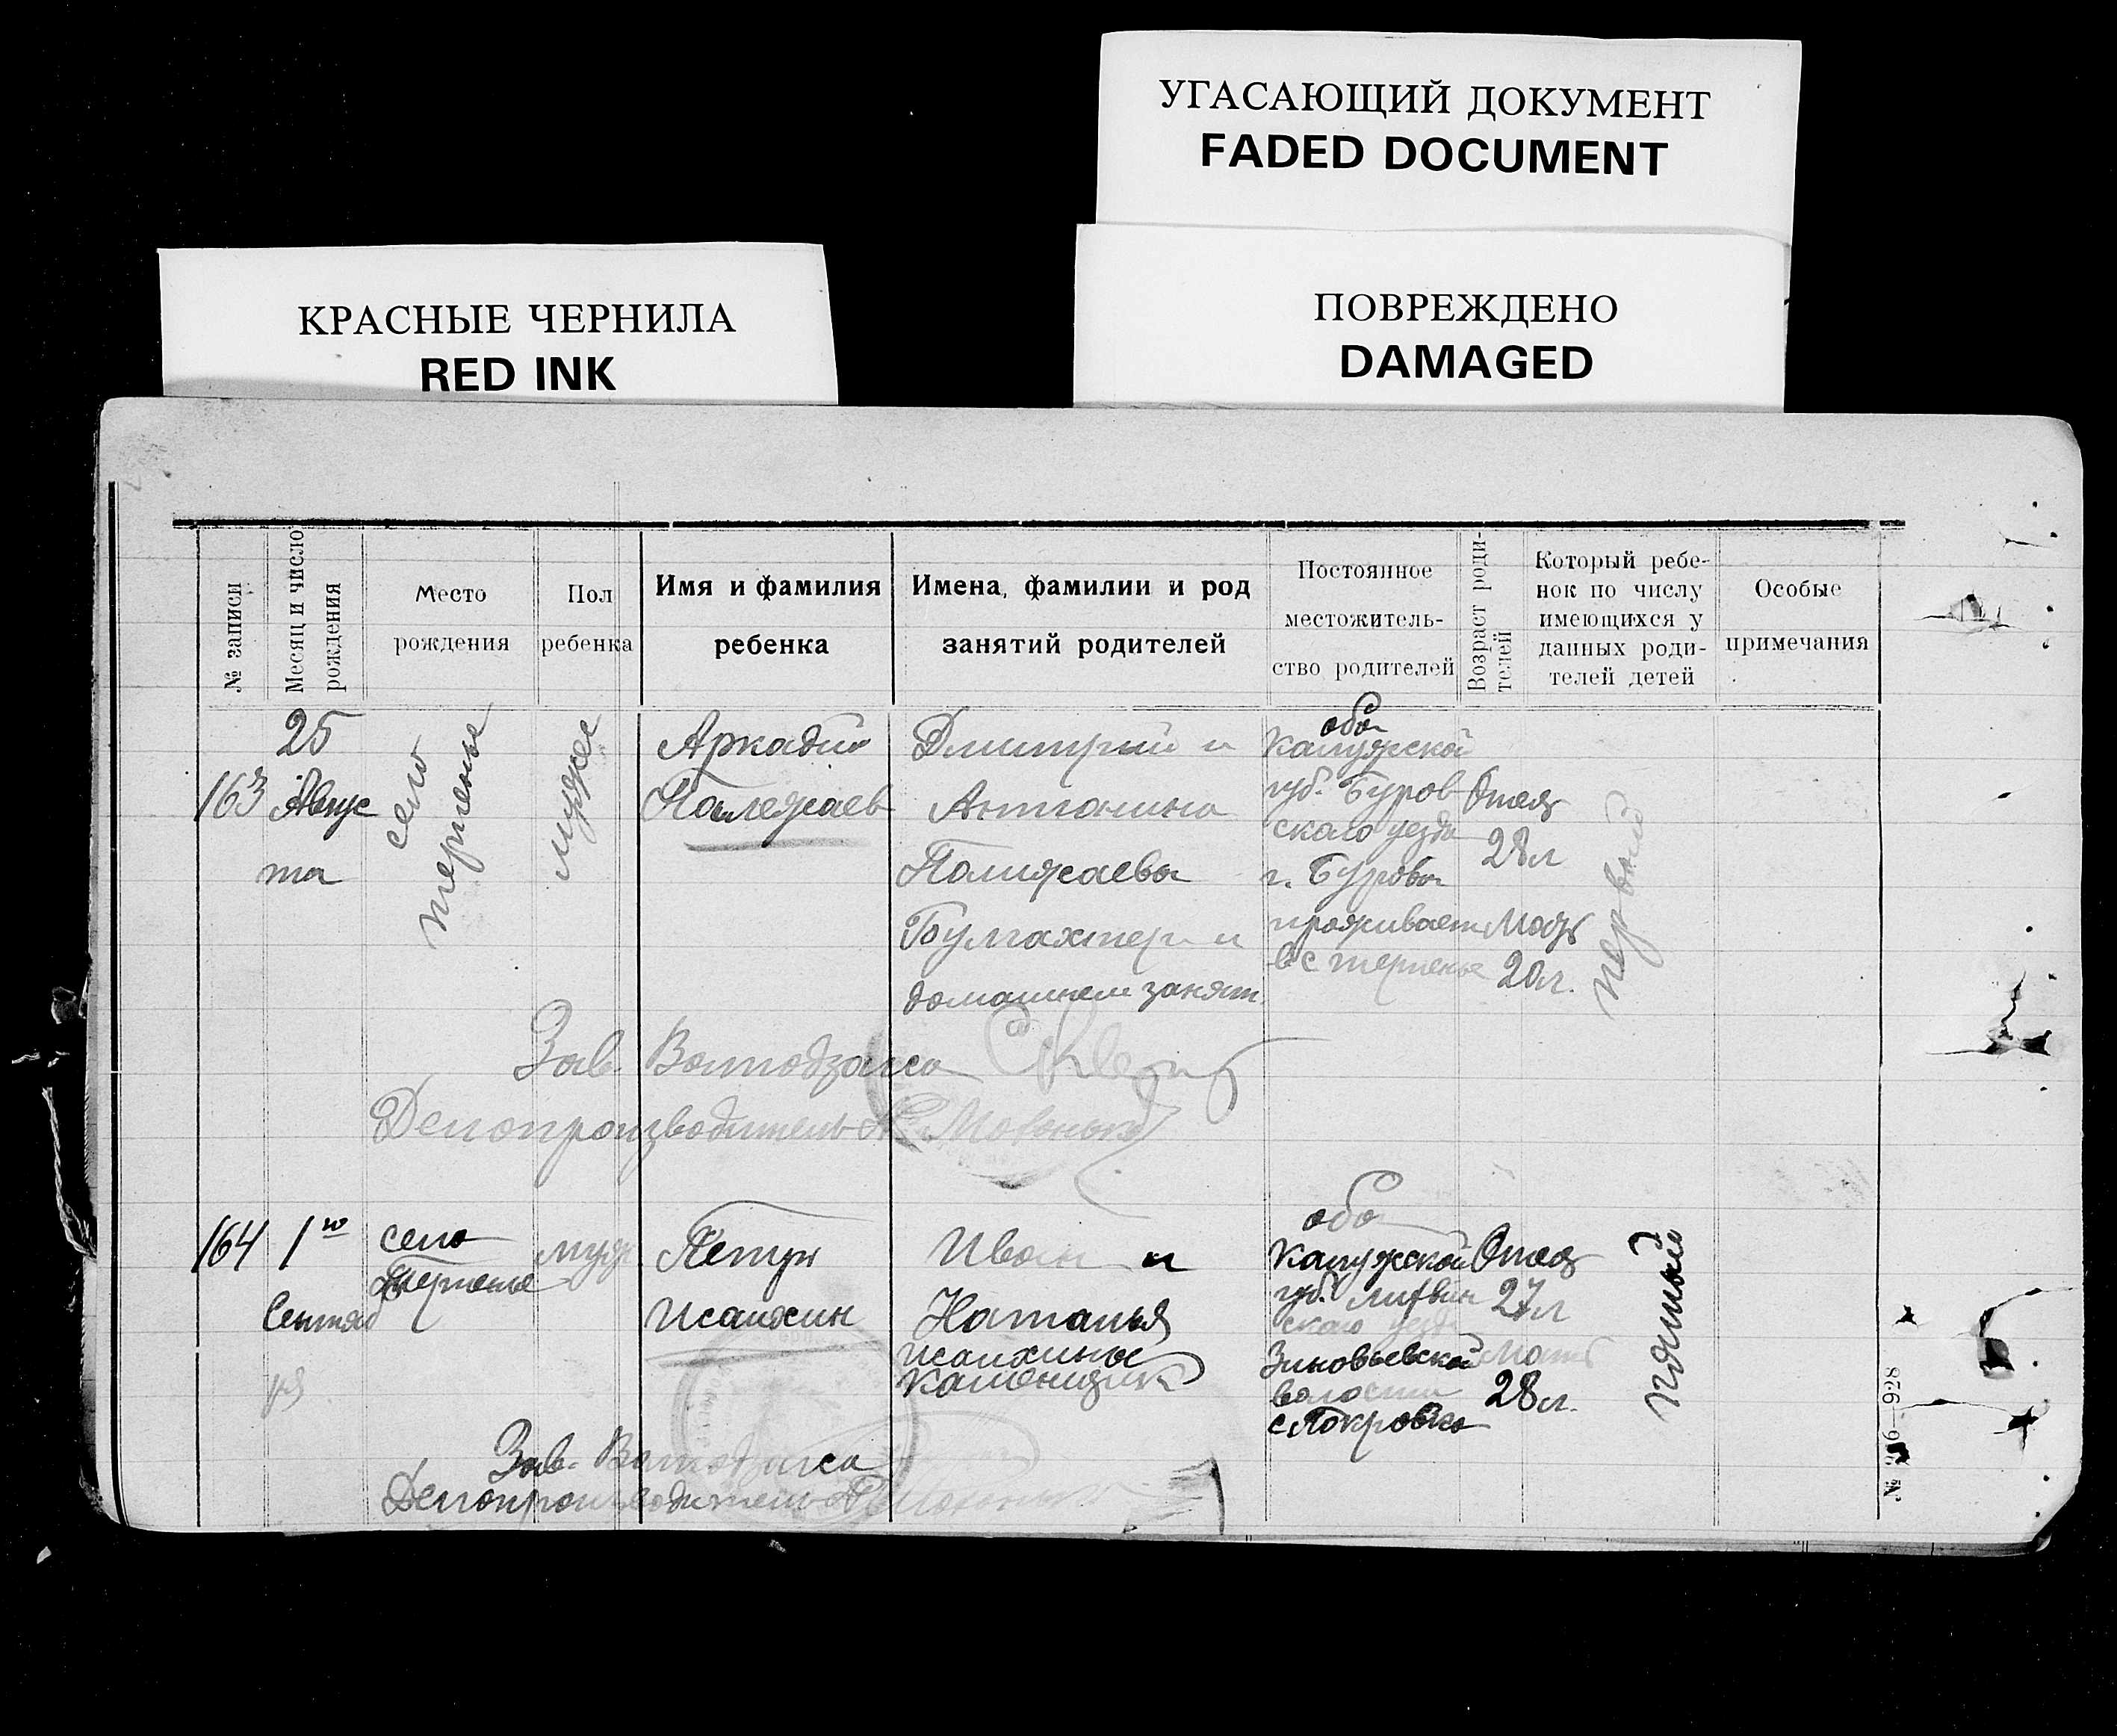 УГАСАЮЩИЙ ДОКУМЕНТ
FADED DOCUMENT
КРАСНЫЕ ЧЕРНИЛА
RED INK
ПОВРЕЖДЕНО
DAMAGED
№ записи
Месяц и число
рождения
Место
рождения
Пол
ребенка
Имя и фамилия
ребенка
Имена, фамилии и род
занятий родителей
Постоянное
местожитель-
ство родителей
Возраст роди-
телей
Который ребе-
нок по числу
имеющихся у
данных роди-
телей детей
Особые
примечания
163
25
Авгус
та
село
терпенье
мужск
Аркадий
Палежаев
Дмитрий и
Антонина
Полижаевы
Булгахтер и
домашнем занят.
оба
Калужской
губ. Буров
скаго уезда
г. Бурова
проживает
в с терпенье
Отец
28л
Мать
20л.
первый
Зав. Волподзагса
Делопроизводитель
164
1го
Сентяб
ря
село
Терпенье
муж
Петун
Исаихин
Иван и
Наталья
Исаихины
Каменщик
оба
Калужской
губ. Лихвин
скаго уезда
Зиновьевской
волости
с Покровка
Отец
27л
Мать
28л.
пятый
Зав. Волподзагса
Делопроизводитель